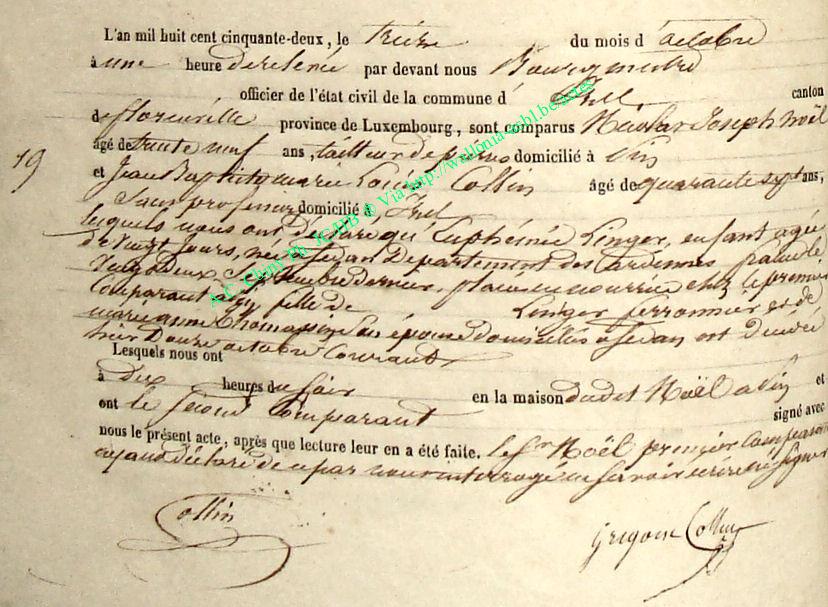 L'an mil huit cent cinquante-deux, le treize du mois d'octobre
à une heure de relevée par devant nous Bourgmestre
officier de l'état civil de la commune d'Izel canton
de florenville province de Luxembourg, sont comparus Nicolas Joseph Noël
19
âgé de trente neuf ans, tailleur de pierre domicilié à Pin
et Jean Baptiste marie Louis Collin âgé de quarante sept ans,
Sans profession domicilié à Izel
lesquels nous ont déclaré que Euphésnie Linger, enfant agée
de vingt Jours, née a Sedan Département des Ardennes france le
Vingt Deux Septembre dernier, placée en nourrice chez le premier
Comparant, fille de Linger ferronnier et de
marie anne Thomassin Son épouse domiciliés a Sedan est décédée
hier Douze octobre Courant
Lesquels nous ont
à dix heures du soir en la maison dudit Noël a Pin et
ont le second Comparant signé avec
nous le présent acte, après que lecture leur en a été faite. le Sr Noël premier Comparant
ayant déclaré de ce par nous interrogé ne savoir écrire ni signer
Collin
Grégoire Collin
A.C. Chiny Ph. JCHB © Via http://wallonia-asbl.be/actes